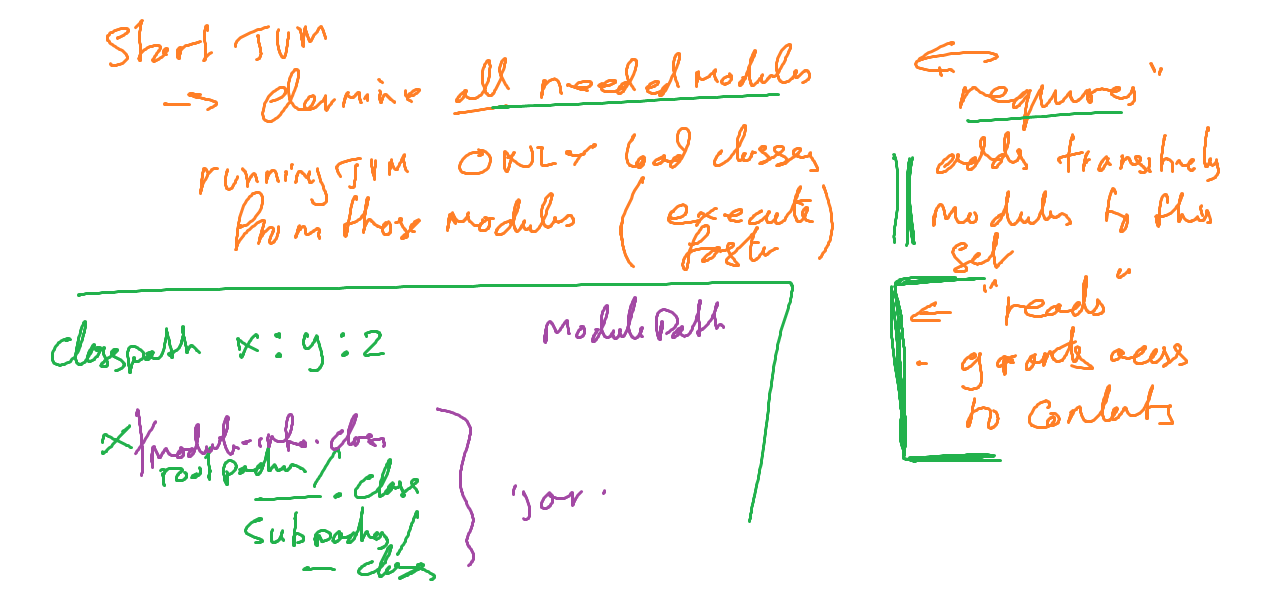 Start JVM
→ dermine all needed modules
running JVM ONLY load classes
from those modules (execute
faster)
← "requires"
adds transitively
modules to this
set
← "reads"
- grants acess
to contents
classpath x:y:z
Module Path
x/module-info.class
root package/
___.class
subpackage/
— class
jar.